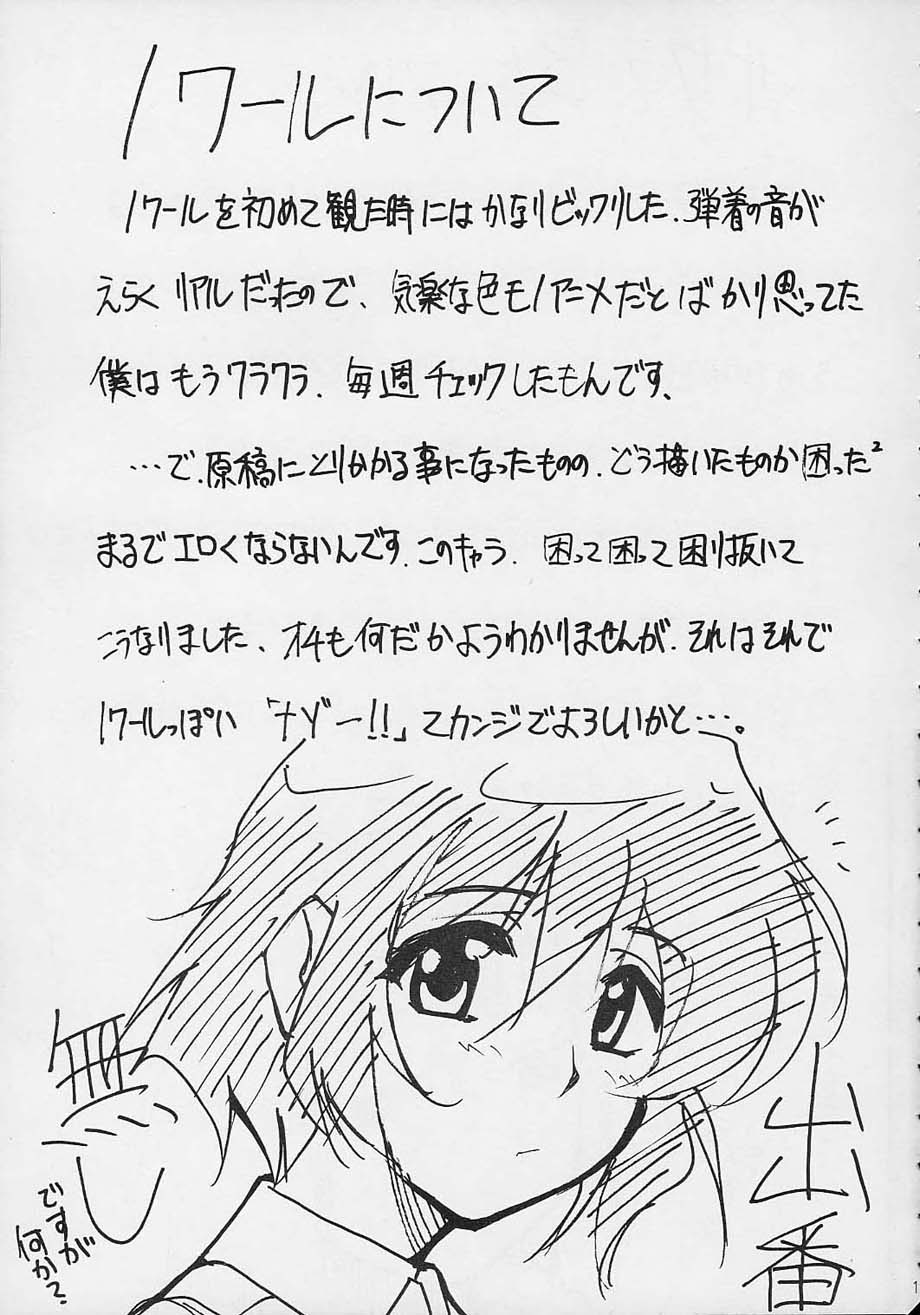 ノワールについて
ノワールを初めて観た時にはかなりビックリした．弾着の音が
えらくリアルだたので、気楽な色モノアニメだとばかり思ってた
僕はもうクラクラ．毎週チェックしたもんです、
…で．原稿にとりかかる事になったものの．どう描いたものか困った²
まるでエロくならないんです．このキャラ．困って困って困り抜いて
こうなりました、オチも何だかようわかりませんが．それはそれで
ノワールっぽい「ナゾー!!」てカンジでよろしいかと…。
出番
ですが
何か？